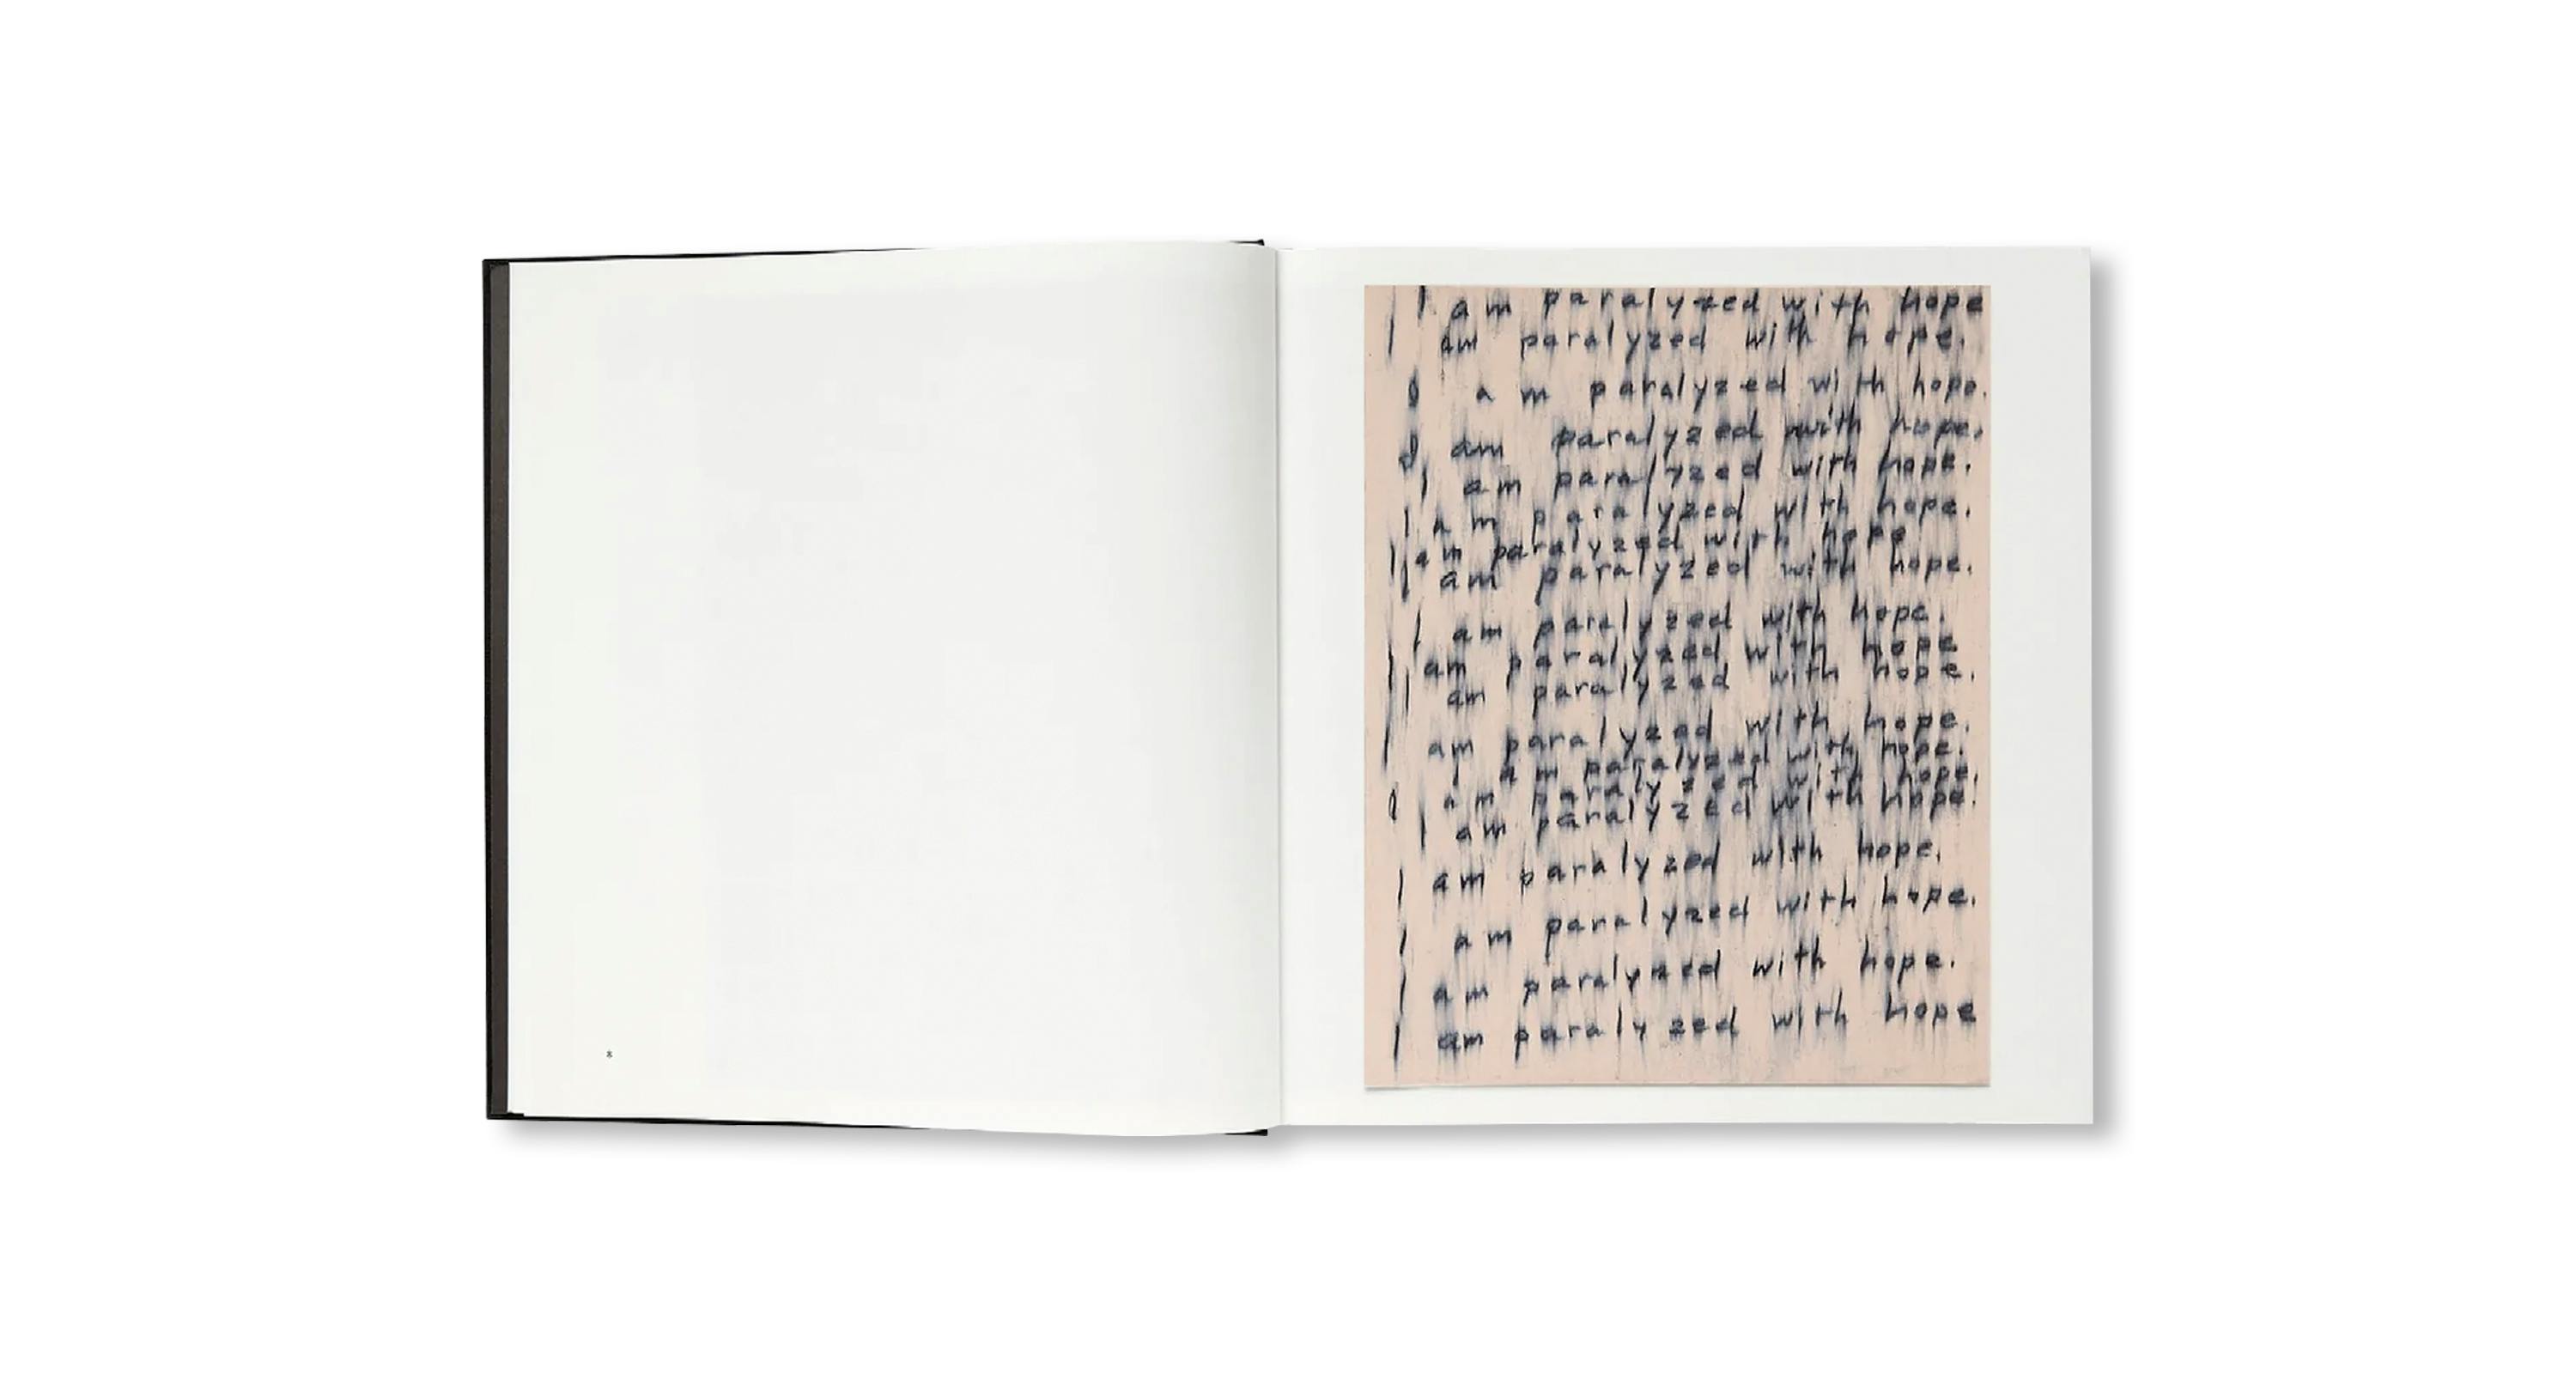 *
I am paralyzed with hope
I am paralyzed with hope.
I am paralyzed with hope.
I am paralyzed with hope.
I am paralyzed with hope.
I am paralyzed with hope.
I am paralyzed with hope
I am paralyzed with hope.
I am paralyzed with hope.
I am paralyzed with hope
I am paralyzed with hope.
I am paralyzed with hope.
I am paralyzed with hope.
I am paralyzed with hope.
I am paralyzed with hope.
I am paralyzed with hope.
I am paralyzed with hope.
I am paralyzed with hope.
I am paralyzed with hope